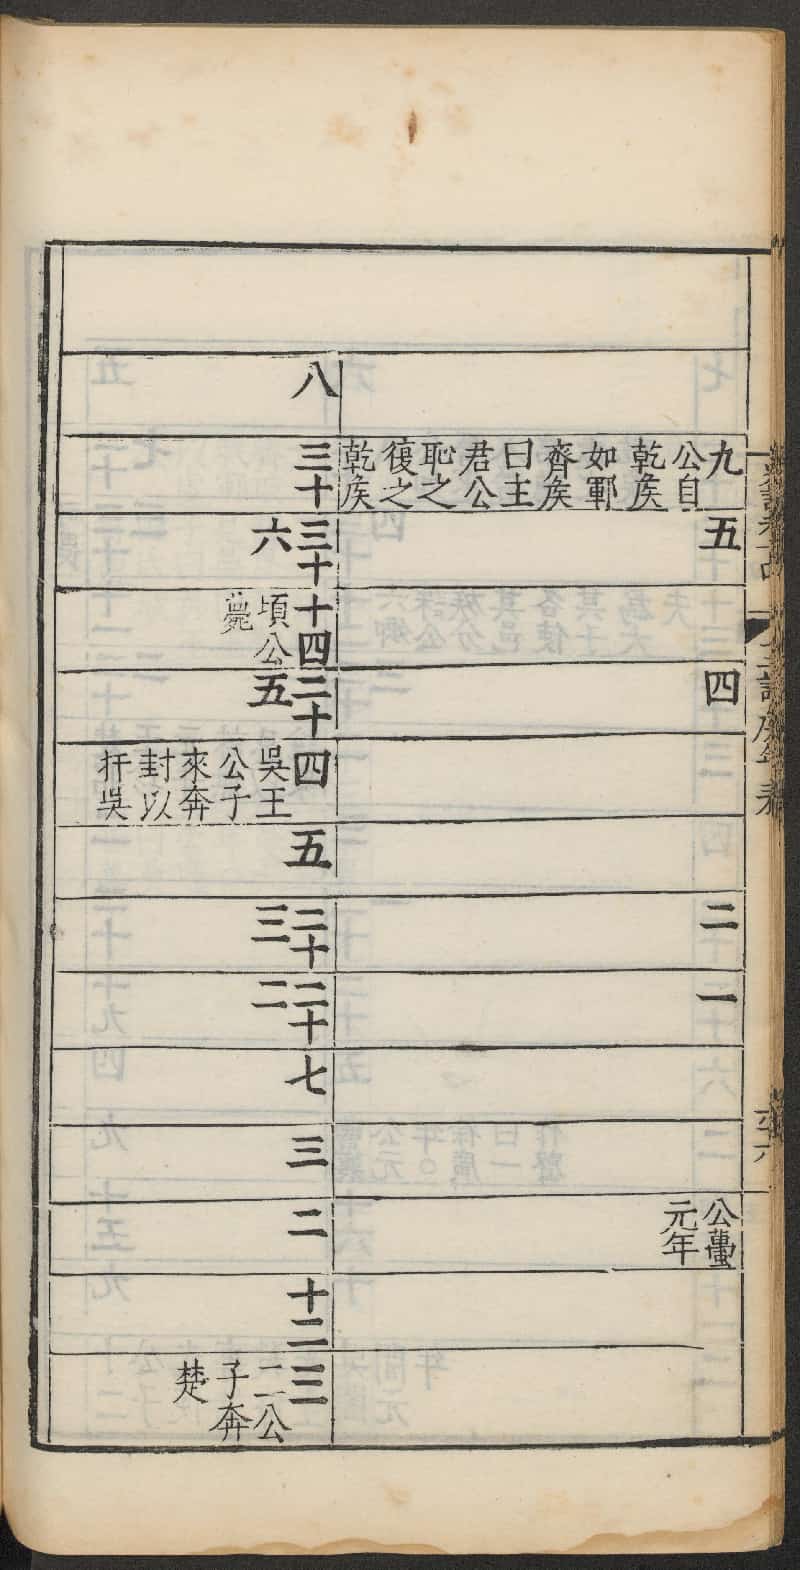 九
公自
乾侯
如鄆
齊侯
曰主
君公
恥之
復之
乾侯
五
四
二
一
公蠆
元年
八
三十
三十
六
十四
頃公
薨
二十
五
四
吳王
公子
來奔
封以
扞吳
五
二十
三
二十
二
七
三
二
十二
三
二公
子奔
楚